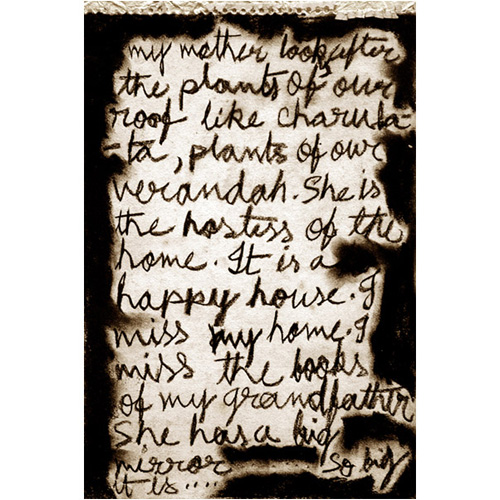 my mother looks after
the plants of our
roof like charula-
-ta, plants of our
verandah. She is
the hostess of the
home. It is a
happy house. I
miss my home. I
miss the books
of my grandfather
She has a big
mirror So big
it is....